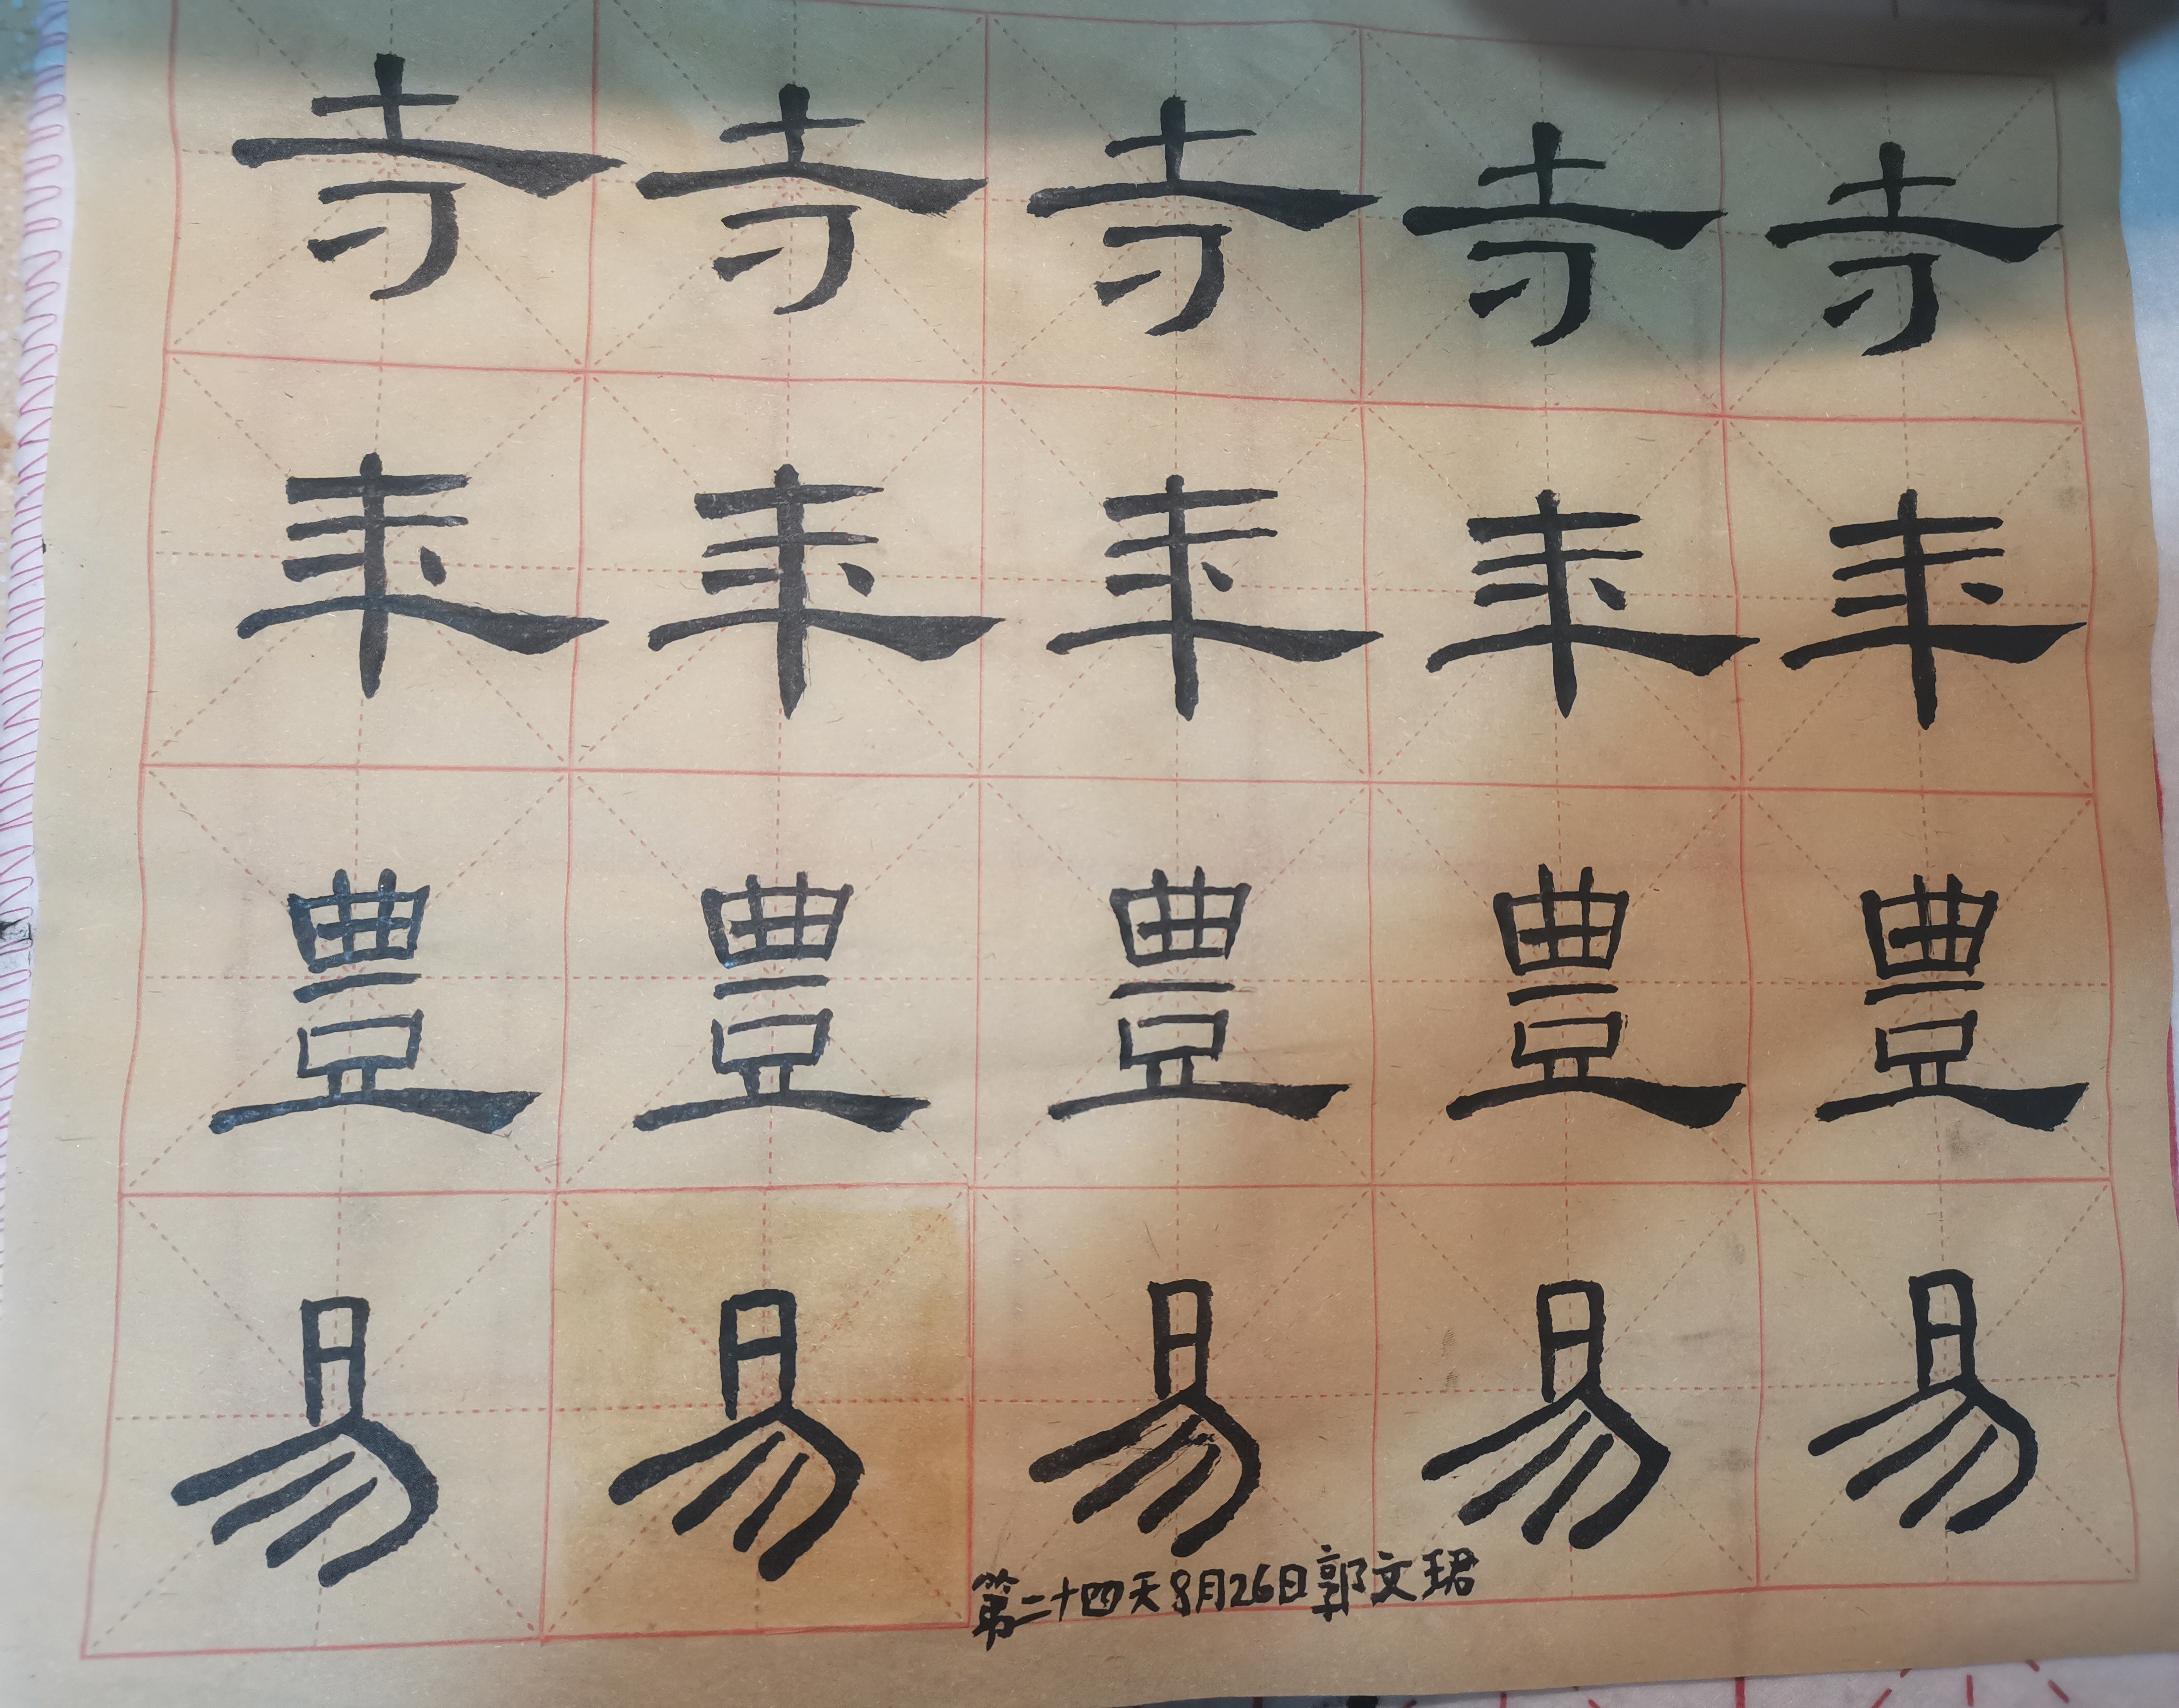 寺寺寺寺寺
年年年年年
豊豊豊豊豊
易易易易易
第二十四天8月26日郭文珺